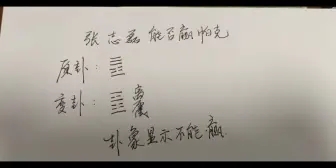 张志磊能否赢帕克
原卦：䷌
变卦：䷝ 离
离
卦象显示不能赢